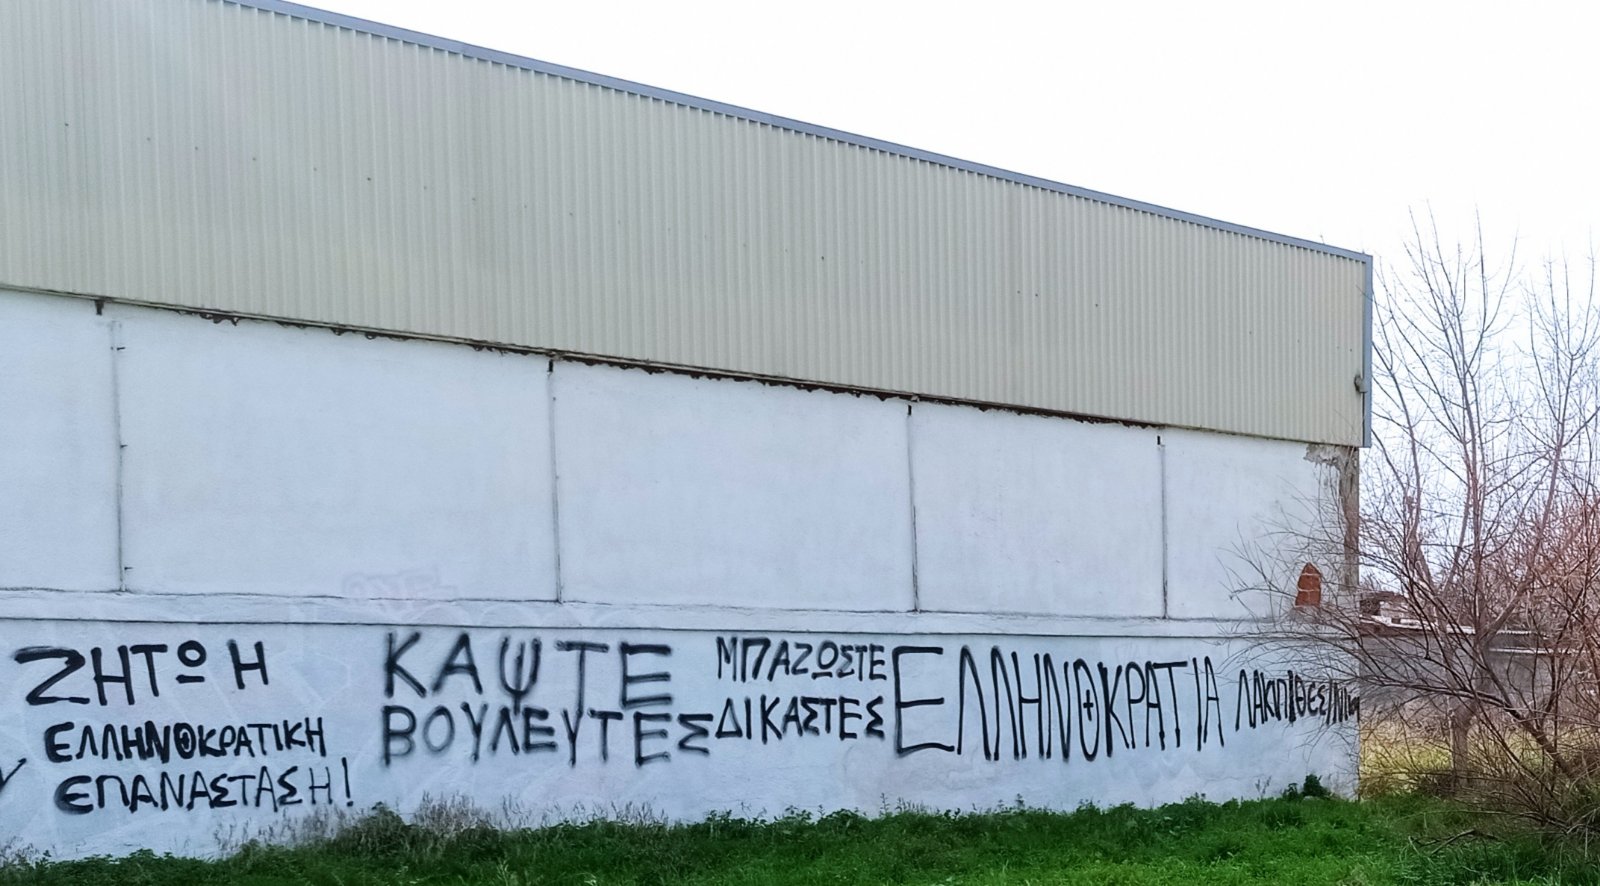 ΖΗΤΩ Η
ΕΛΛΗΝΟΚΡΑΤΙΚΗ
ΕΠΑΝΑΣΤΑΣΗ!
ΚΑΨΤΕ
ΒΟΥΛΕΥΤΕΣ
ΜΠΑΖΩΣΤΕ
ΔΙΚΑΣΤΕΣ
ΕΛΛΗΝΟΚΡΑΤΙΑ